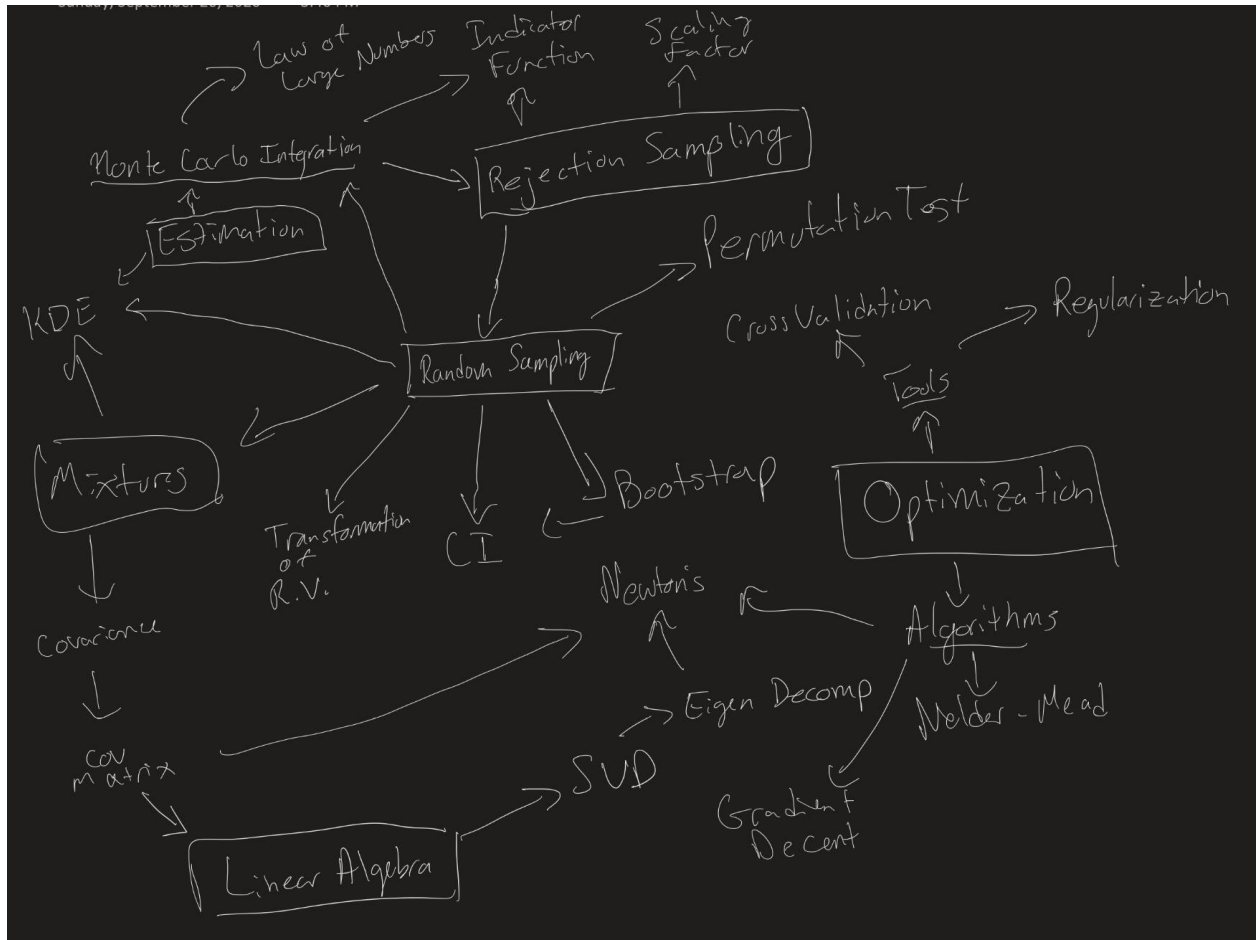 Law of
Large Numbers
Indicator
Function
Scaling
Factor
Monte Carlo Integration
Rejection Sampling
Estimation
Permutation Test
KDE
Cross Validation
Regularization
Random Sampling
Tools
Mixtures
Bootstrap
Optimization
Transformation
of
R.V.
CI
Newton's
Algorithms
Covariance
Eigen Decomp
Nelder-Mead
Cov
matrix
SVD
Gradient
Decent
Linear Algebra